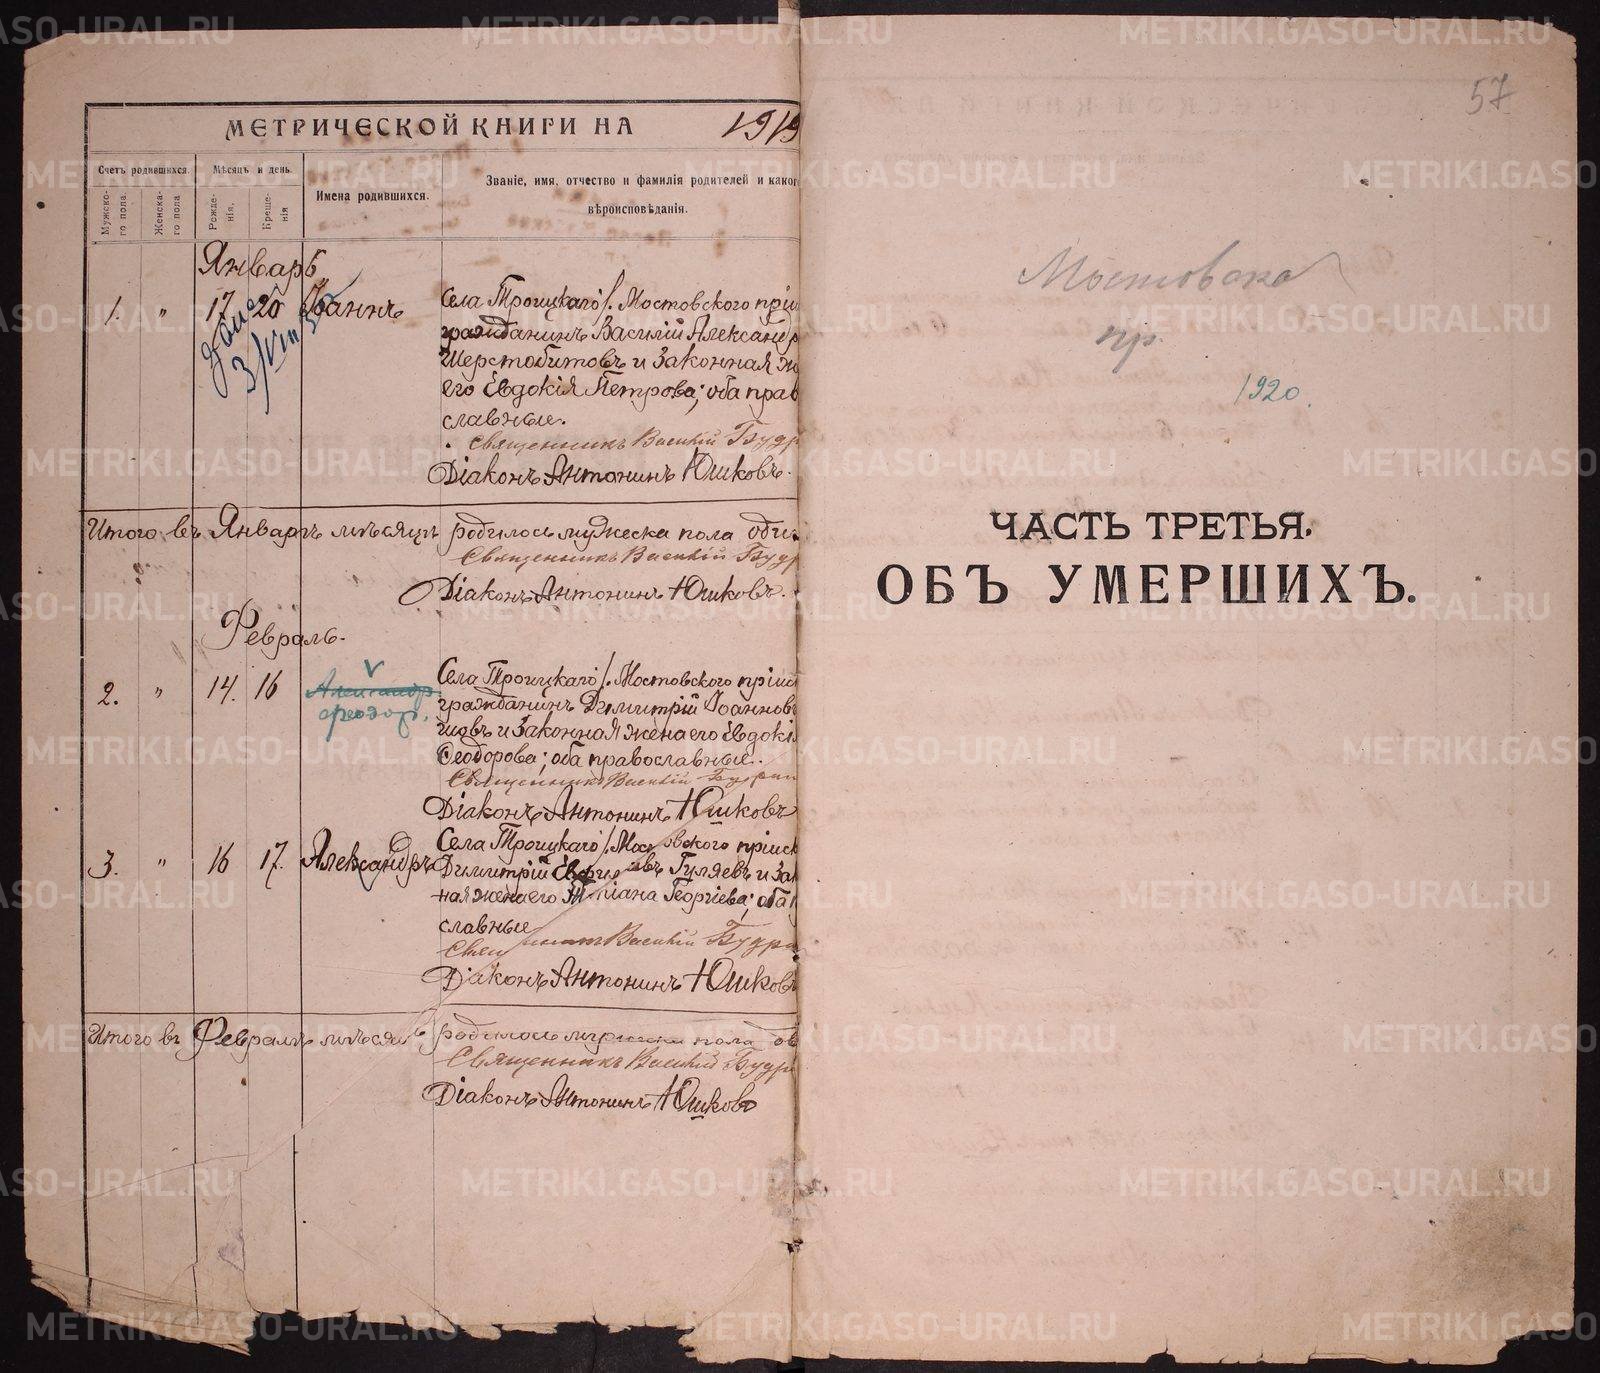 МЕТРИЧЕСКОЙ КНИГИ НА 1919
Счетъ родившихся.
Мужско-го пола.
Женска-го пола
Мѣсяцъ и день.
Рожде-нія.
Креще-нія
Имена родившихся.
Званіе, имя, отчество и фамилія родителей и каког
вѣроисповѣданія.
Январь
1. " 17 20 Іоаннъ
Села Троицкаго/. Мостовского прі
гражданинъ Василій Александр
Шерстобитовъ и законная ж
его Евдокія Петрова; оба прав
славные.
Священникъ Василій Будр
Діаконъ Антонинъ Юшковъ.
Итого въ Январѣ мѣсяцѣ родилось мужеска пола оди
Священникъ Василій Будр
Діаконъ Антонинъ Юшковъ.
Февраль.
2. " 14. 16 Александр
Феодор.
Села Троицкаго/. Мостовского пріис
гражданинъ Димитрій Іоаннов
и законная жена его Евдокі
Феодорова; оба православные.
Священникъ Василій Будрин
Діаконъ Антонинъ Юшковъ
3. " 16 17. Александръ
Села Троицкаго/. Мостовского пріиск
Димитрій Гуляевъ и зак
ная жена его Георгіева; оба
славные
Священникъ Василій Будри
Діаконъ Антонинъ Юшковъ
Итого въ Февралѣ мѣсяцѣ родилось мужеска пола дв
Священникъ Василій Будри
Діаконъ Антонинъ Юшковъ
57
Мостовска
пр.
1920.
ЧАСТЬ ТРЕТЬЯ.
ОБЪ УМЕРШИХЪ.
METRIKI.GASO-URAL.RU